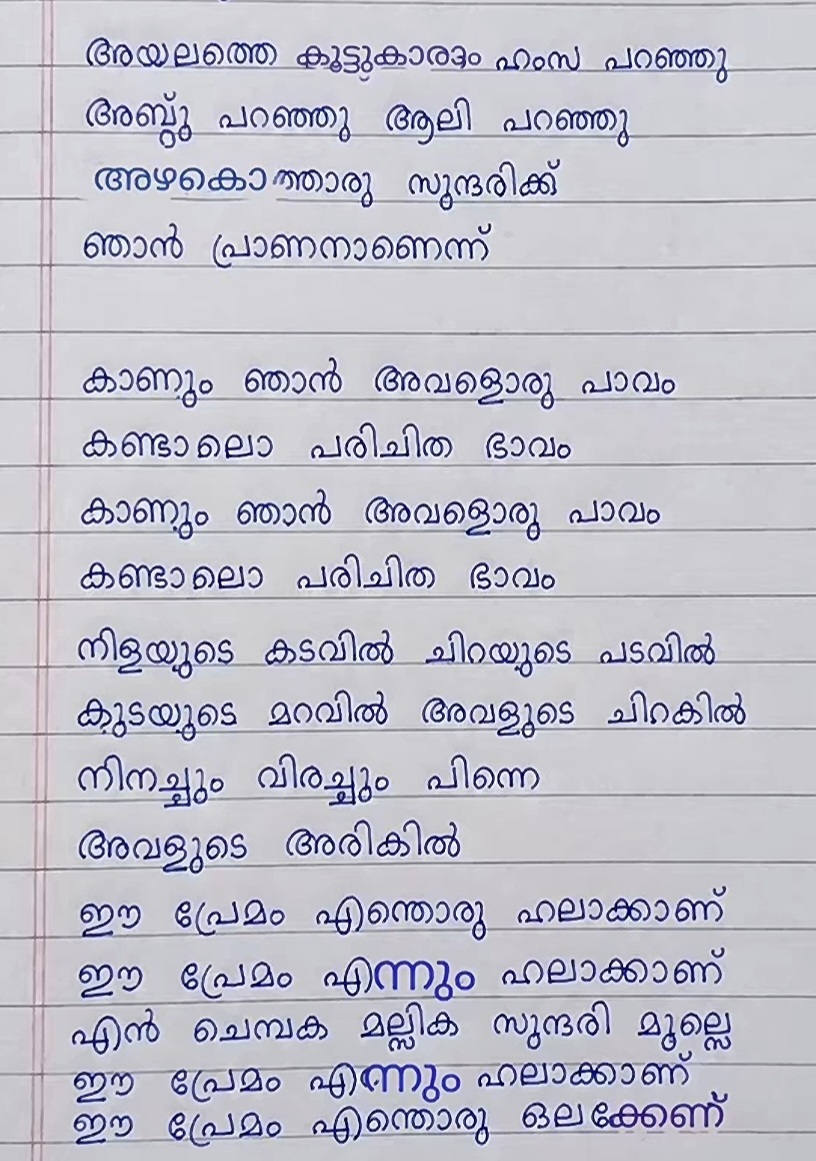 അയലത്തെ കൂട്ടുകാരാം ഹംസ പറഞ്ഞു
അബ്ദു പറഞ്ഞു ആലി പറഞ്ഞു
അഴകൊത്താരു സുന്ദരിക്ക്
ഞാൻ പ്രാണനാണെന്ന്
കാണും ഞാൻ അവളൊരു പാവം
കണ്ടാലൊ പരിചിത ഭാവം
കാണും ഞാൻ അവളൊരു പാവം
കണ്ടാലൊ പരിചിത ഭാവം
നിളയുടെ കടവിൽ ചിറയുടെ പടവിൽ
കുടയുടെ മറവിൽ അവളുടെ ചിറകിൽ
നിനച്ചും വിരച്ചും പിന്നെ
അവളുടെ അരികിൽ
ഈ പ്രേമം എന്തൊരു ഹലാക്കാണ്
ഈ പ്രേമം എന്നും ഹലാക്കാണ്
എൻ ചെമ്പക മല്ലിക സുന്ദരി മുല്ലെ
ഈ പ്രേമം എന്നും ഹലാക്കാണ്
ഈ പ്രേമം എന്തൊരു ഒലക്കേണ്